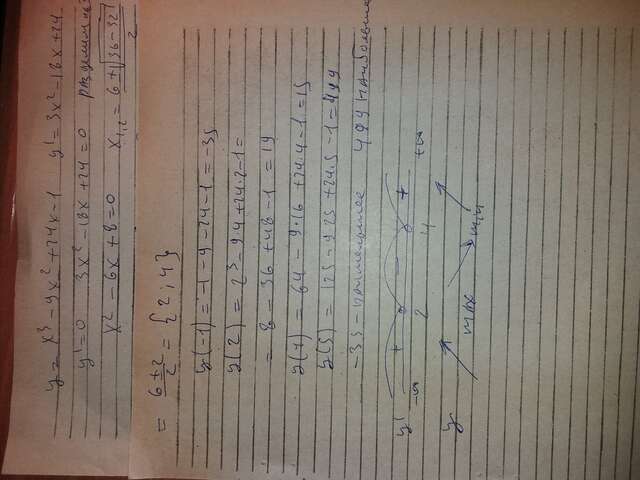 y = x³ - 9x² + 24x - 1 y' = 3x² - 18x + 24
y' = 0 3x² - 18x + 24 = 0 разделим на 3
x² - 6x + 8 = 0 x₁,₂ = (6 ± √(36 - 32))/2
= (6 ± 2)/2 = {2; 4}
y(-1) = -1 - 9 - 24 - 1 = -35
y(2) = 2³ - 9·4 + 24·2 - 1 =
= 8 - 36 + 48 - 1 = 19
y(4) = 64 - 9·16 + 24·4 - 1 = 15
y(5) = 125 - 9·25 + 24·5 - 1 = 499
-35 - наименьшее 499 наибольшее
y' -∞ + 2 - 4 + +∞
y max min